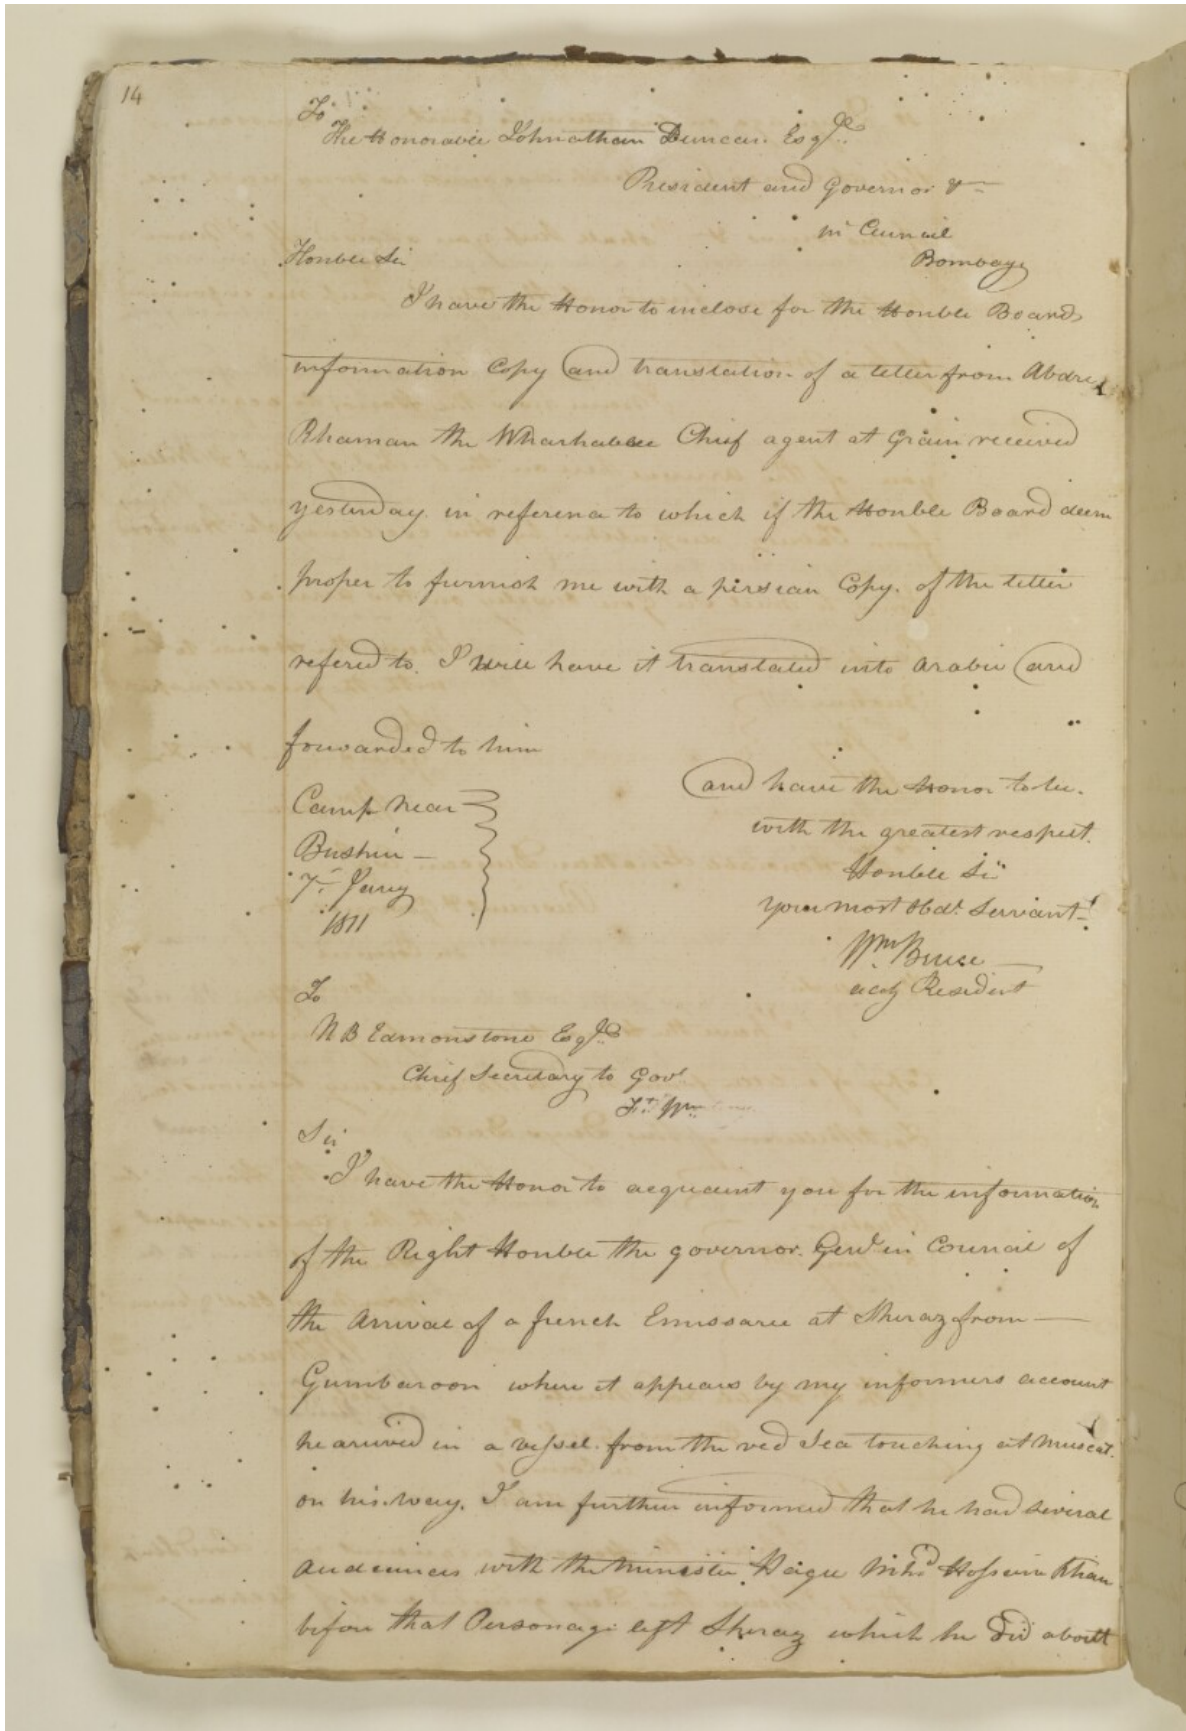 14
To
The Honorable Johnathan Duncan Esqre
President and Governor &c
in Council
Bombay
Honble Sir
I have the Honor to inclose for the Honble Boards
information Copy and translation of a letter from Abdre
Rhaman the Wharhabee Chief agent at Grain received
yesterday in reference to which if the Honble Board deem
proper to furnish me with a persian Copy of the letter
refered to. I will have it translated into Arabic and
forwarded to him
and have the Honor to be.
with the greatest respect.
Honble Sir
your most Obdt. Servant
Wm. Bruce
actg Resident
Camp near
Bushire
7th Jany
1811
To
N B Edmonstone Esqre
Chief Secretary to Govt
Ft. Wm.
Sir
I have the Honor to acquaint you for the information
of the Right Honble the governor Genl in Council of
the Arrival of a french Emissaree at Sheraz from
Gumbaroon where it appears by my informers account
he arrived in a vessel from the red Sea touching at Muscat.
on his way. I am further informed that he had several
audiences with the Minister Hagee Mhd Hossein Khan
before that Personage left Sheraz which he did aboutt